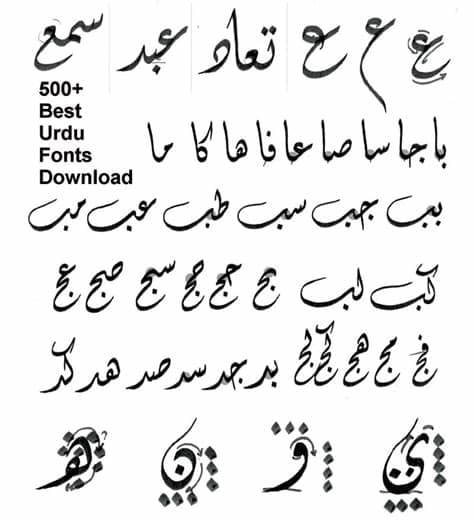 ع ع ع تعاد عبد سمع
500+
Best
Urdu
Fonts
Download
با جا سا صا عا فا ها كا ما
بب جب سب طب عب مب
كب لب بج حج سج صج عج
فج مج هج كج لج بد جد سد صد هد كد
و ن